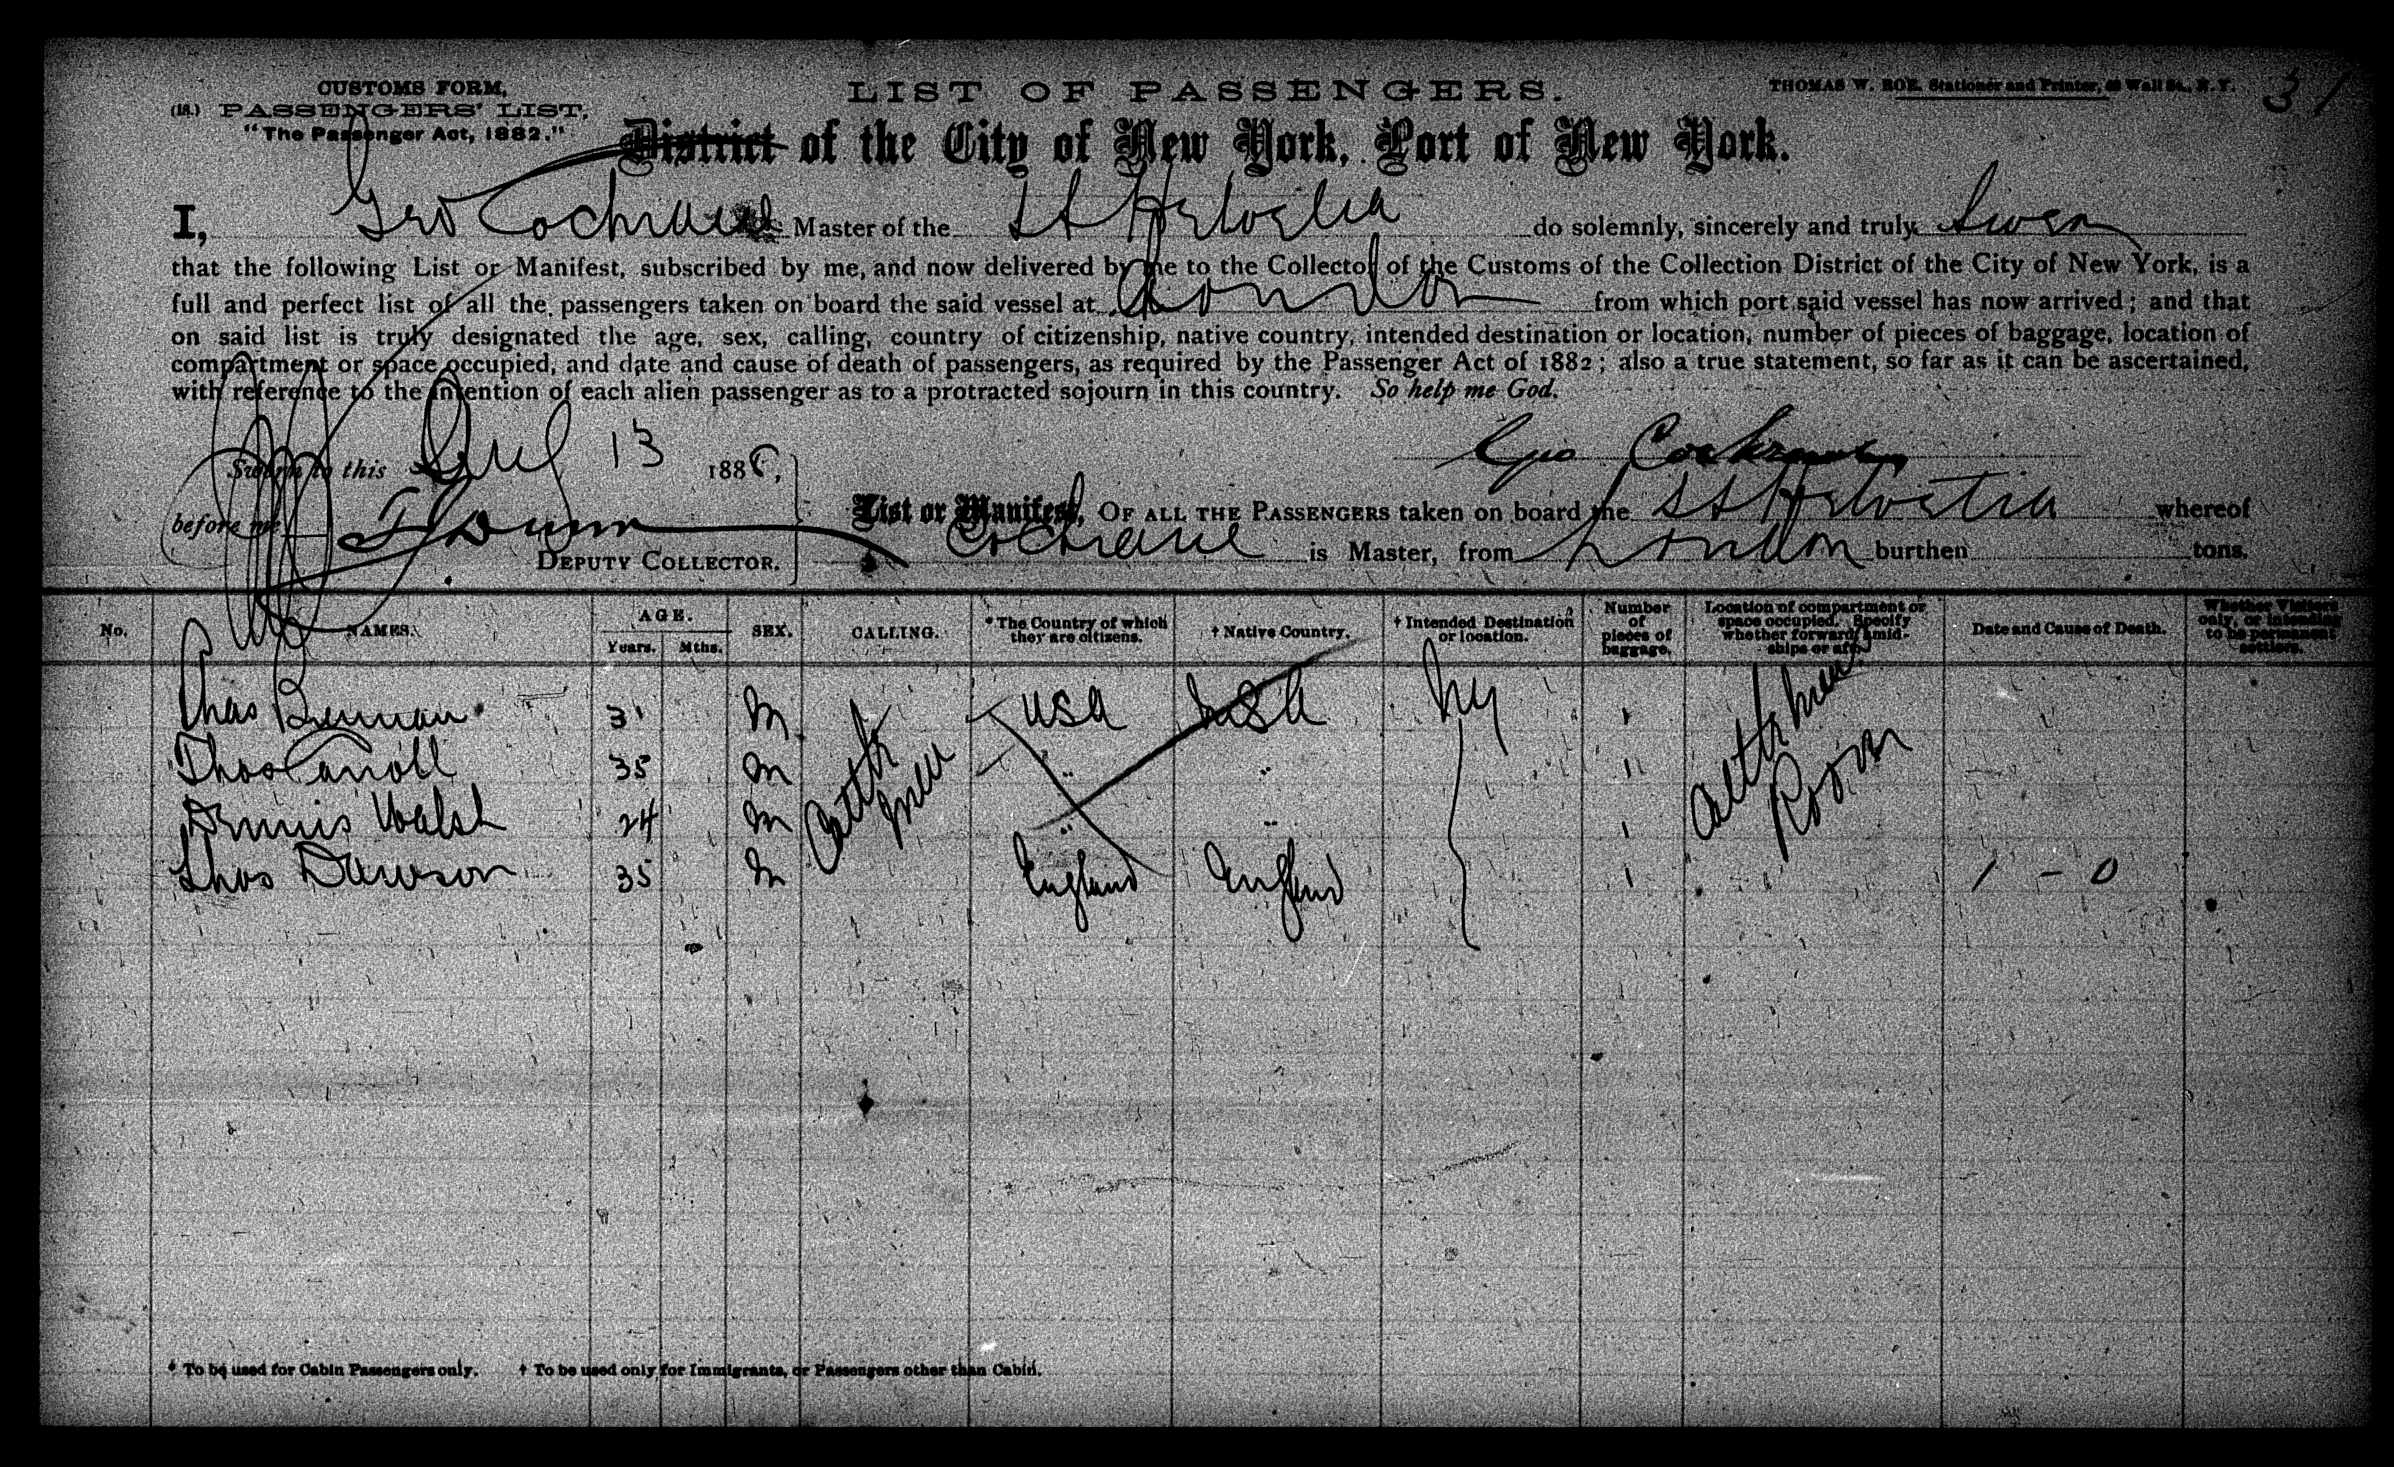 CUSTOMS FORM,
(18.) PASSENGERS' LIST,
"The Passenger Act, 1882."
LIST OF PASSENGERS.
THOMAS W. ROE, Stationer and Printer, Wall St., N. Y.
31
District of the City of New York, Port of New York.
I, Geo Cochrane Master of the SS Helvetia do solemnly, sincerely and truly Swear
that the following List or Manifest, subscribed by me, and now delivered by me to the Collector of the Customs of the Collection District of the City of New York, is a
full and perfect list of all the passengers taken on board the said vessel at London from which port said vessel has now arrived; and that
on said list is truly designated the age, sex, calling, country of citizenship, native country, intended destination or location, number of pieces of baggage, location of
compartment or space occupied, and date and cause of death of passengers, as required by the Passenger Act of 1882; also a true statement, so far as it can be ascertained,
with reference to the intention of each alien passenger as to a protracted sojourn in this country. So help me God.
Sworn to this Jul 13 1886,
Geo Cochrane
before me
DEPUTY COLLECTOR.
List or Manifest, OF ALL THE PASSENGERS taken on board the SS Helvetia whereof
Cochrane is Master, from London burthen tons.
No. NAMES. AGE. Years. Mths. SEX. CALLING. * The Country of which they are citizens. † Native Country. † Intended Destination or location. Number of pieces of baggage. Location of compartment or space occupied. Specify whether forward, amidships or aft. Date and Cause of Death. Whether Visitors only, or intending to be permanent settlers.
Chas Brennan 31 M Cattle men USA USA NY 1 Cattle mens Room
Thos Carroll 35 M " " 1
Dennis Walsh 24 M " " 1
Thos Dawson 35 M England England 1 1 - 0
* To be used for Cabin Passengers only. † To be used only for Immigrants, or Passengers other than Cabin.